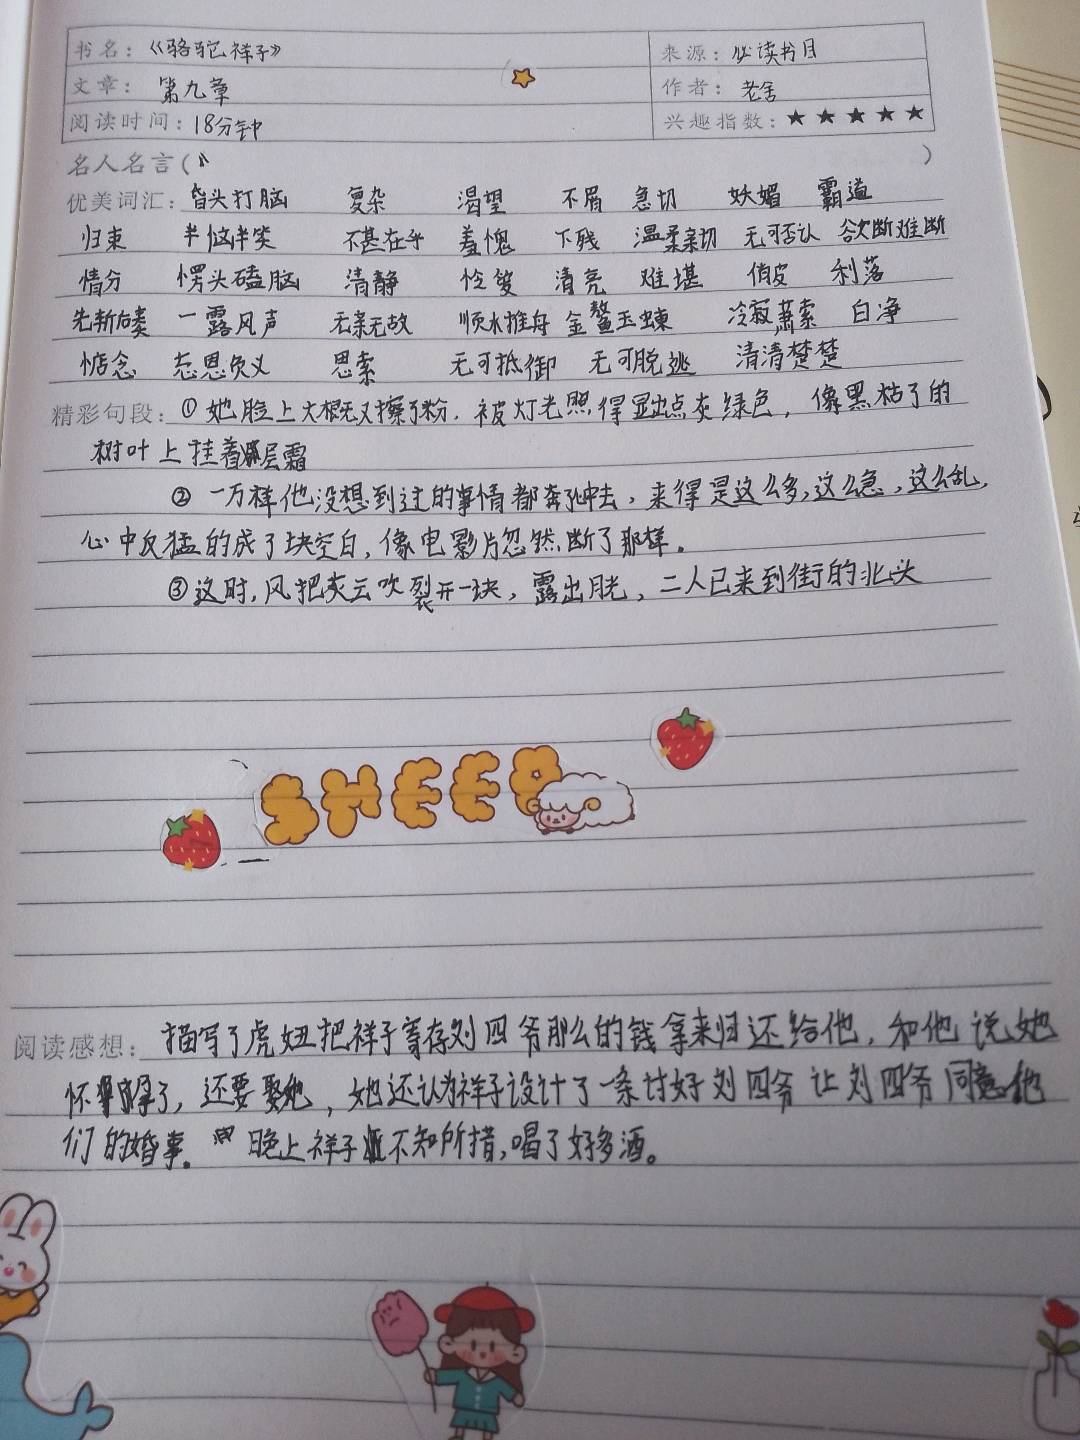 书名：《骆驼祥子》 来源：必读书目
文章：第九章 作者：老舍
阅读时间：18分钟 兴趣指数：★★★★★
名人名言（ ）
优美词汇：昏头打脑 复杂 渴望 不屑 急切 妖媚 霸道
归束 半恼半笑 不甚在乎 羞愧 下贱 温柔亲切 无可否认 欲断难断
情分 愣头磕脑 清静 清亮 难堪 俏皮 利落
先斩后奏 一露风声 无亲无故 顺水推舟 金鳌玉蝀 冷寂萧索 白净
惦念 忘恩负义 思索 无可抵御 无可脱逃 清清楚楚
精彩句段：①她脸上大概又擦了粉，被灯光照得显出点灰绿色，像黑枯了的
树叶上挂着层霜
②一万样他没想到过的事情都奔了心中去，来得是这么多，这么急，这么乱，
心中反猛的成了块空白，像电影片忽然断了那样。
③这时，风把灰云吹裂开一块，露出月光，二人已来到街的北头
SLEEP
阅读感想：描写了虎妞把祥子寄存刘四爷那么的钱拿来归还给他，和他说她
怀孕了，还要娶她，她还认为祥子设计了一条讨好刘四爷让刘四爷同意他
们的婚事。晚上祥子不知所措，喝了好多酒。